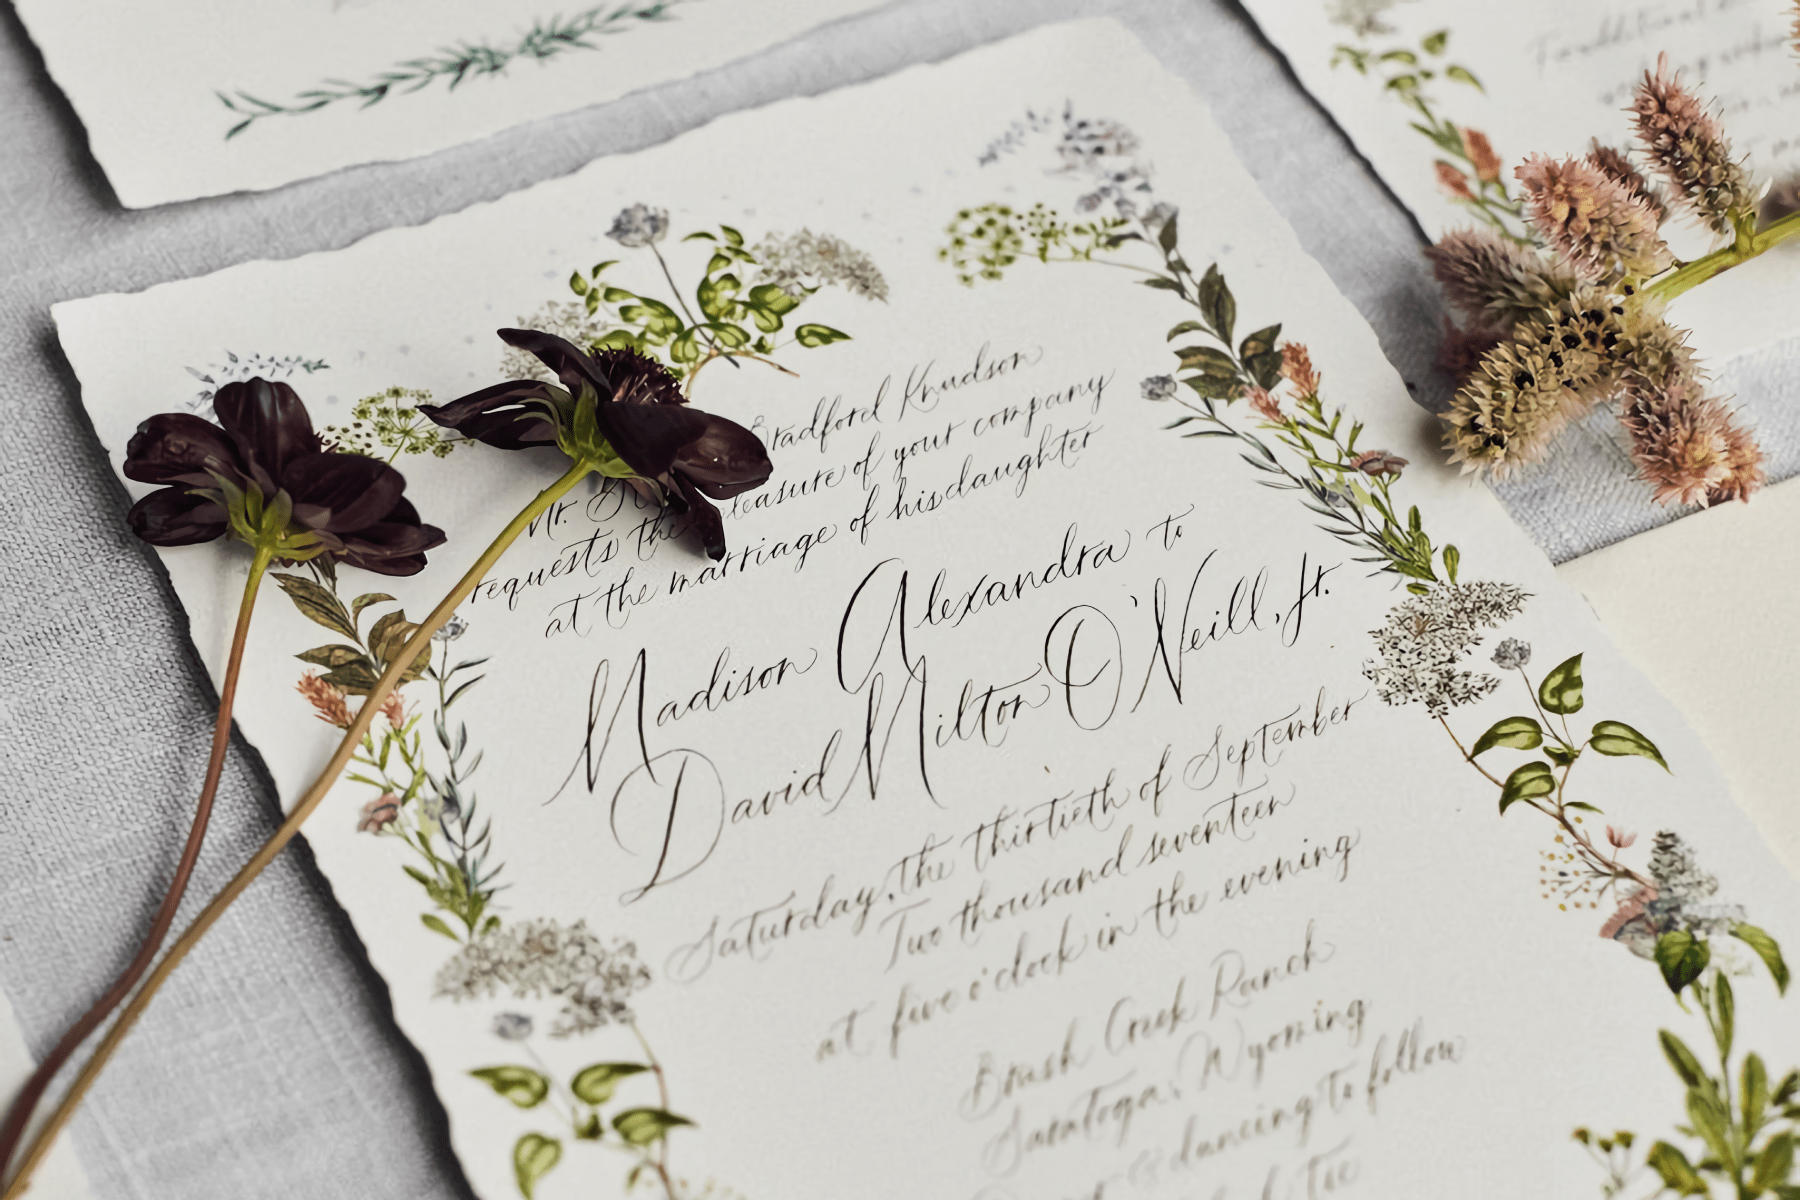 Mr. Bradford Knudson
requests the pleasure of your company
at the marriage of his daughter
Madison Alexandra to
David Milton O'Neill, Jr.
Saturday, the thirtieth of September
Two thousand seventeen
at five o'clock in the evening
Brush Creek Ranch
Saratoga, Wyoming
& dancing to follow